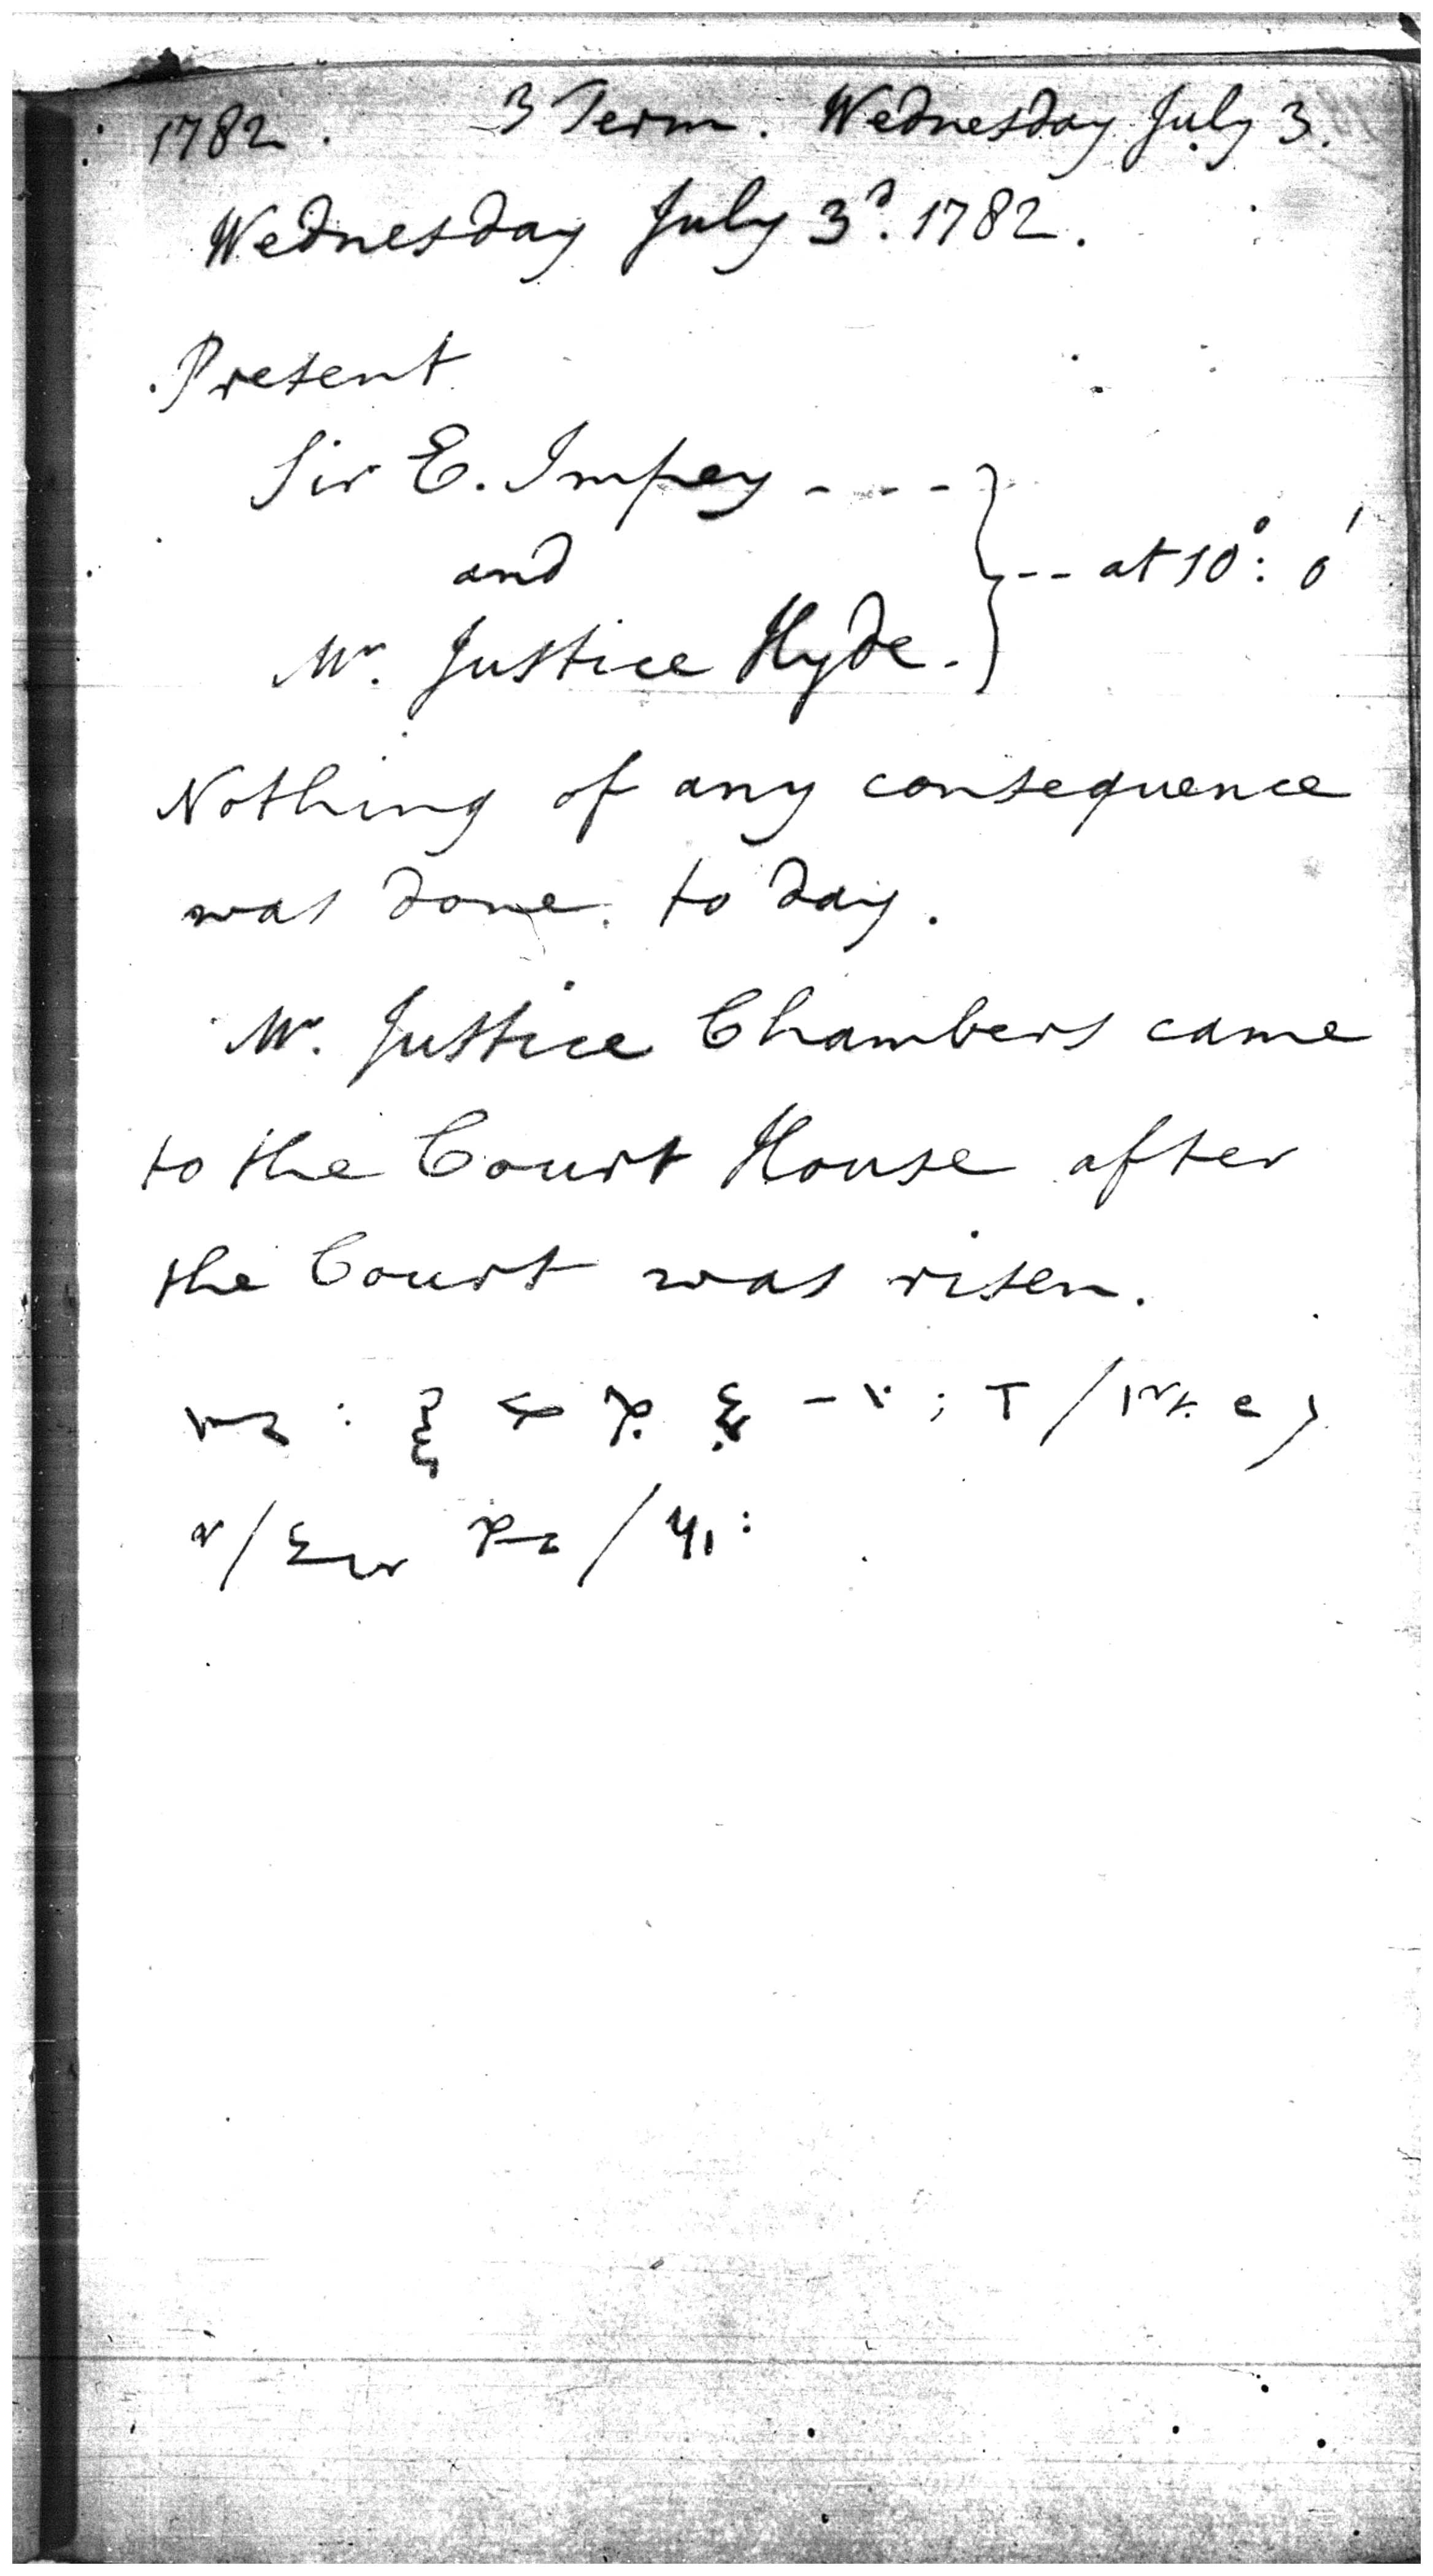 1782. 3 Term. Wednesday July 3.
Wednesday July 3d. 1782.
Present
Sir E. Impey - - - -
and
-- at 10°: 0'
Mr. Justice Hyde.
Nothing of any consequence
was done to day.
Mr. Justice Chambers came
to the Court House after
the Court was risen.